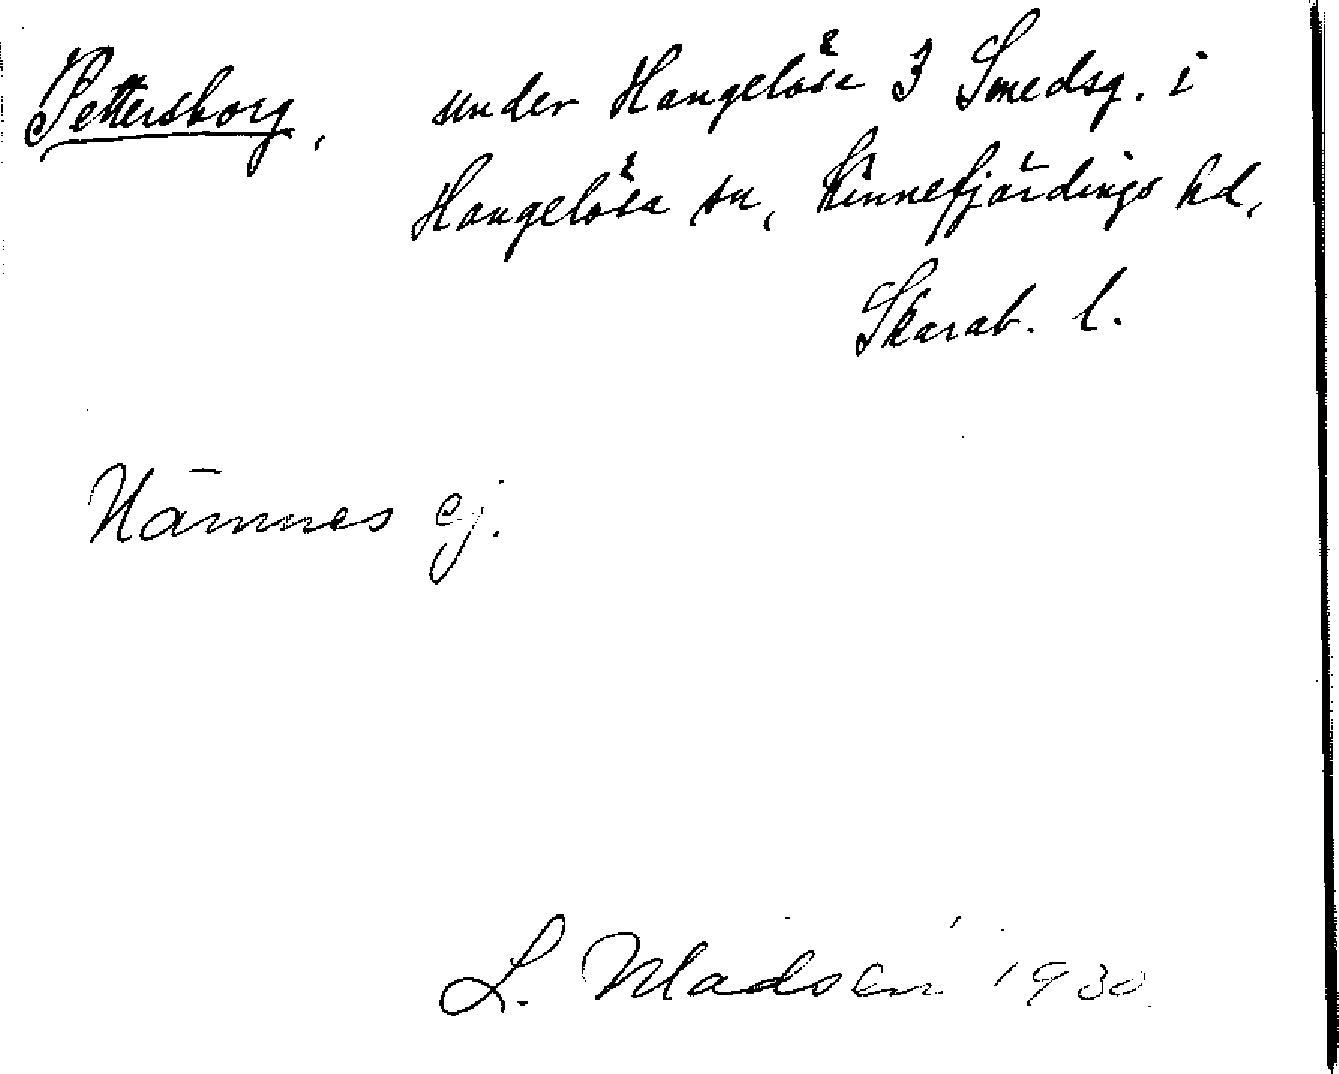 Pettersborg, under Hangelösa 3 Smedsg. i
Hangelösa sn, Kinnefjärdings hd,
Skarab. l.
Nämnes ej.
L. Madsén 1930